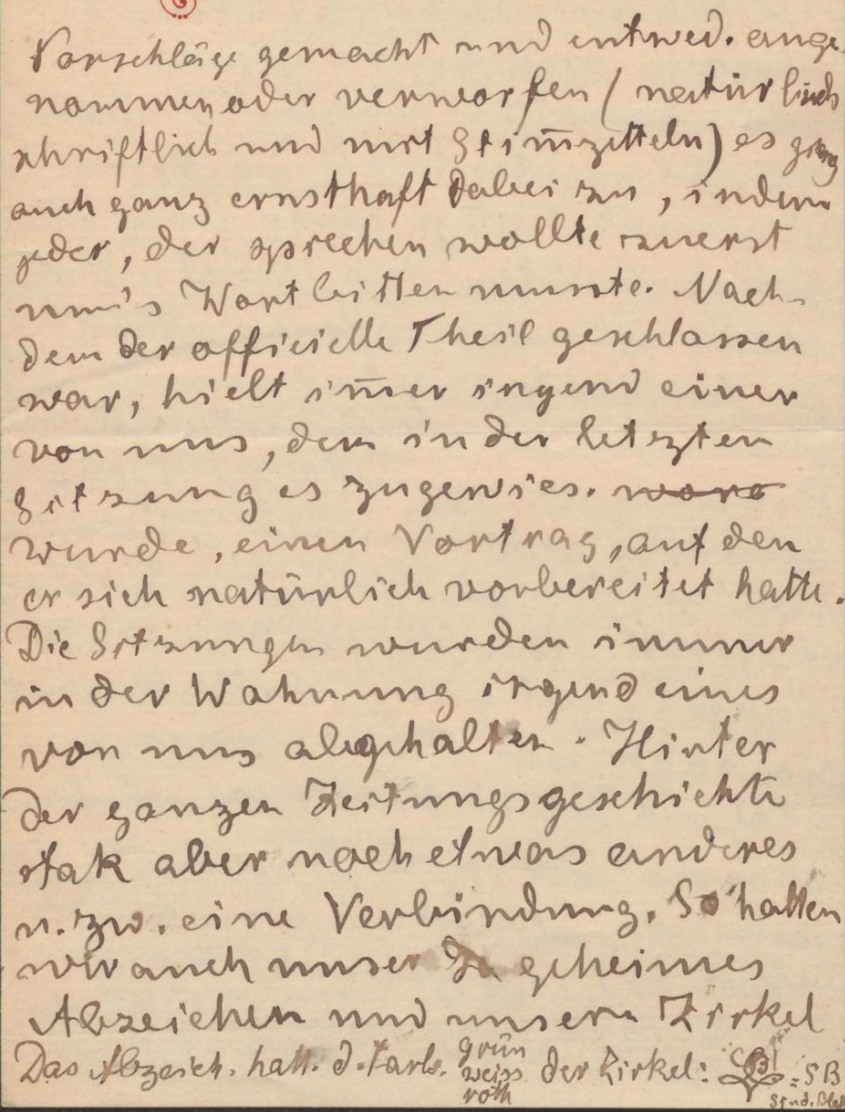 Vorschläge gemacht und entwed. ange-
nommen oder verworfen (natürlich
schriftlich und mit Stim̄zetteln) es ging
auch ganz ernsthaft dabei zu, indem
jeder, der sprechen wollte zuerst
um's Wort bitten musste. Nach-
dem der officielle Theil geschlossen
war, hielt im̄er irgend einer
von uns, dem in der letzten
Sitzung es zugewies. ware
wurde, einen Vortrag, auf den
er sich natürlich vorbereitet hatte.
Die Sitzungen wurden immer
in der Wohnung irgend eines
von uns abgehalten. Hinter
der ganzen Zeitungsgeschichte
stak aber noch etwas anderes
u. zw. eine Verbindung. So hatten
wir auch unser geheimes
Abzeichen und unsern Zirkel
Das Abzeich. hatt. d. Farb. grün weiss roth der Zirkel: = SB
Stud. Blatt